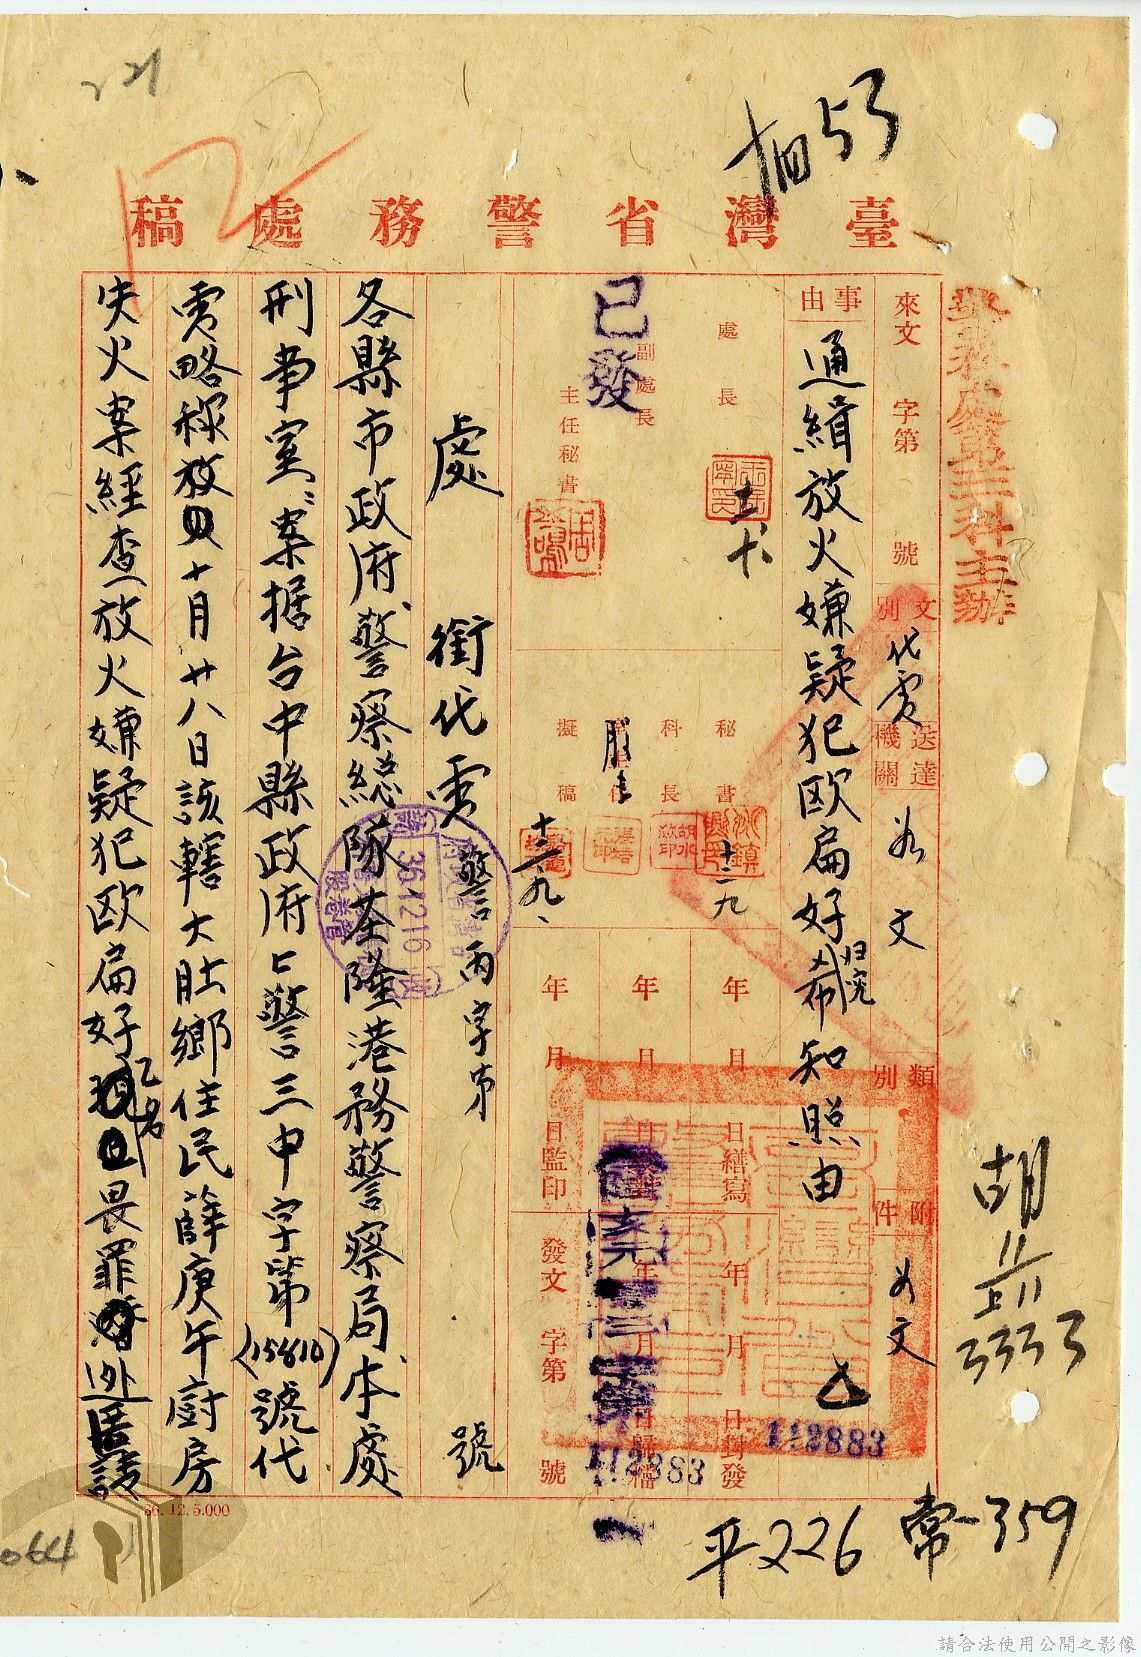 臺灣省警務處稿
來文 字第 號
文別 代電
送達機關 如文
類別
附件 如文
事由 通緝放火嫌疑犯欧扁好希歸究知照由
處長
副處長
主任秘書
已發
秘書
科長
主任
擬稿
十二九
年 月 日繕寫
年 月 日封發
年 月 日監印
發文 字第 號
112883
112883
處銜代電 警丙字第 號
各縣市政府、警察総隊、基隆港務警察局、本處
刑事室：案据台中縣政府亡警三申字第(15810)號代
電略稱：放十月廿八日該轄大肚鄉住民薛庚午廚房
失火案經查放火嫌疑犯欧扁好乙名畏罪逃匿請
36.12.5.000
361216
平226
常-359
3333
胡
53
064
請合法使用公開之影像